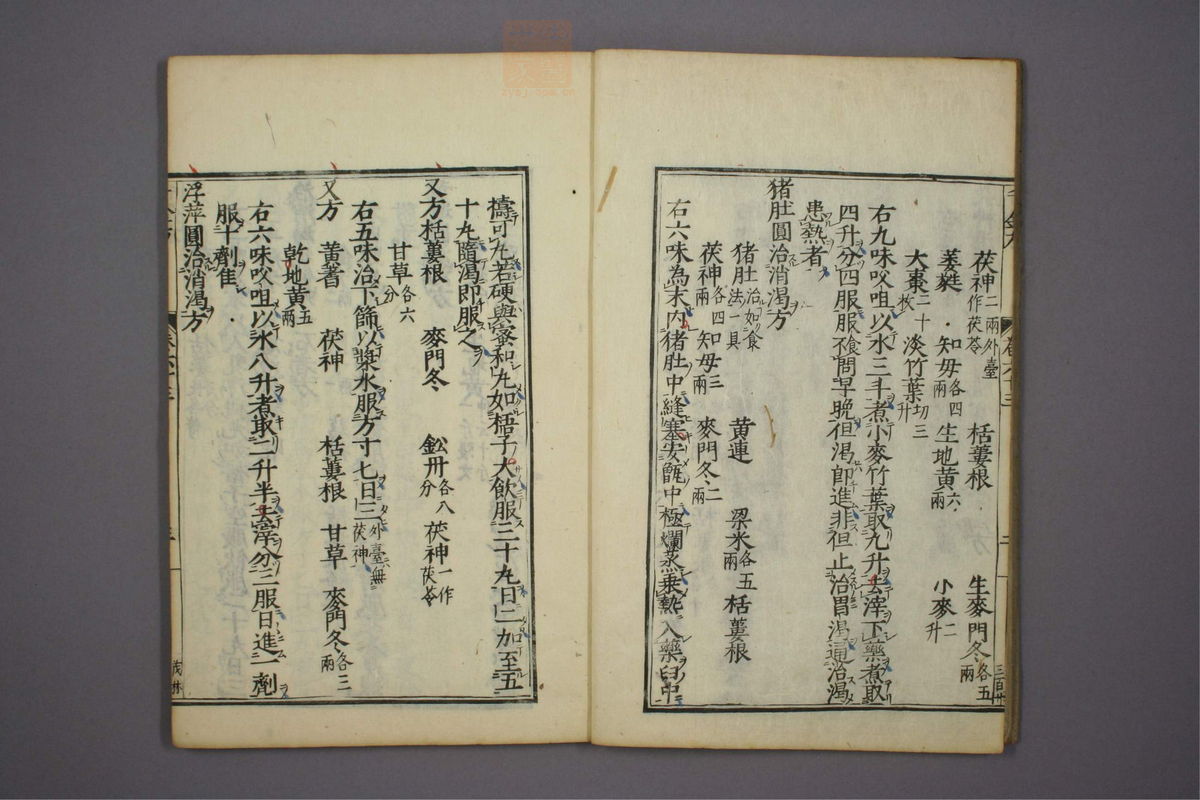 茯神二兩外臺作茯苓 栝蔞根 生麥門冬各五兩
萎蕤 知母各四兩 生地黃六兩 小麥二升
大棗二十枚 淡竹葉切三升
右九味㕮咀以水三斗煮小麥竹葉取九升去滓下藥煮取
四升分四服服不問早晚但渴即進非但止治胃渴通治渴
患熱者
猪肚圓治消渴方
猪肚治如食法一具 黃連 梁米各五兩 栝蔞根
茯神各四兩 知母三兩 麥門冬二兩
右六味為末內猪肚中縫塞安甑中極爛蒸乗熱入藥臼中
擣可丸若硬與蜜和丸如梧子大飲服三十丸日二加至五
十丸隨渴即服之
又方栝蔞根 麥門冬 鈆丹各八分 茯神一作茯苓
甘草各六分
右五味治下篩以漿水服方寸匕日三外臺無茯神
又方 黃耆 茯神 栝蔞根 甘草 麥門冬各三兩
乾地黃五兩
右六味㕮咀以水八升煮取二升半去滓分三服日進一劑
服十劑佳
浮萍圓治消渴方